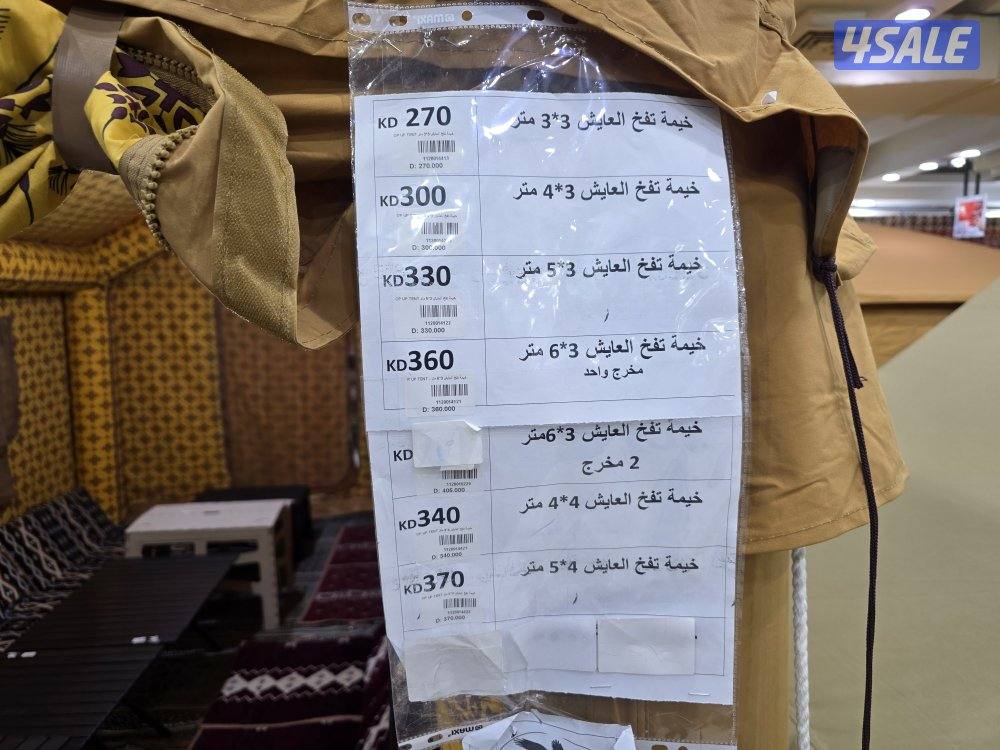 4SALE
MAXI
KD 270
خيمة تفخ العايش 3*3 متر
1120014413
D: 270.000
KD300
خيمة تفخ العايش 3*4 متر
D: 300.000
KD330
خيمة تفخ العايش 3*5 متر
1120014122
D: 330.000
KD360
خيمة تفخ العايش 3*6 متر
مخرج واحد
1120014121
D: 360.000
KD
خيمة تفخ العايش 3*6متر
2 مخرج
D: 405.000
KD340
خيمة تفخ العايش 4*4 متر
D: 340.000
KD370
خيمة تفخ العايش 4*5 متر
D: 370.000
MAXI